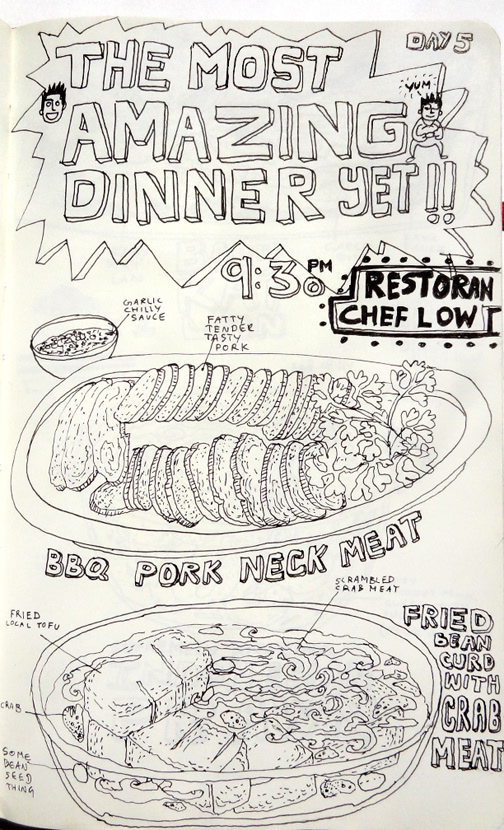 DAY 5
THE MOST
AMAZING
DINNER YET!!
YUM
9:30 PM
RESTORAN
CHEF LOW
GARLIC
CHILLY
SAUCE
FATTY
TENDER
TASTY
PORK
BBQ PORK NECK MEAT
SCRAMBLED
CRAB MEAT
FRIED
LOCAL TOFU
FRIED
BEAN
CURD
WITH
CRAB
MEAT
CRAB
SOME
BEAN
SEED
THING